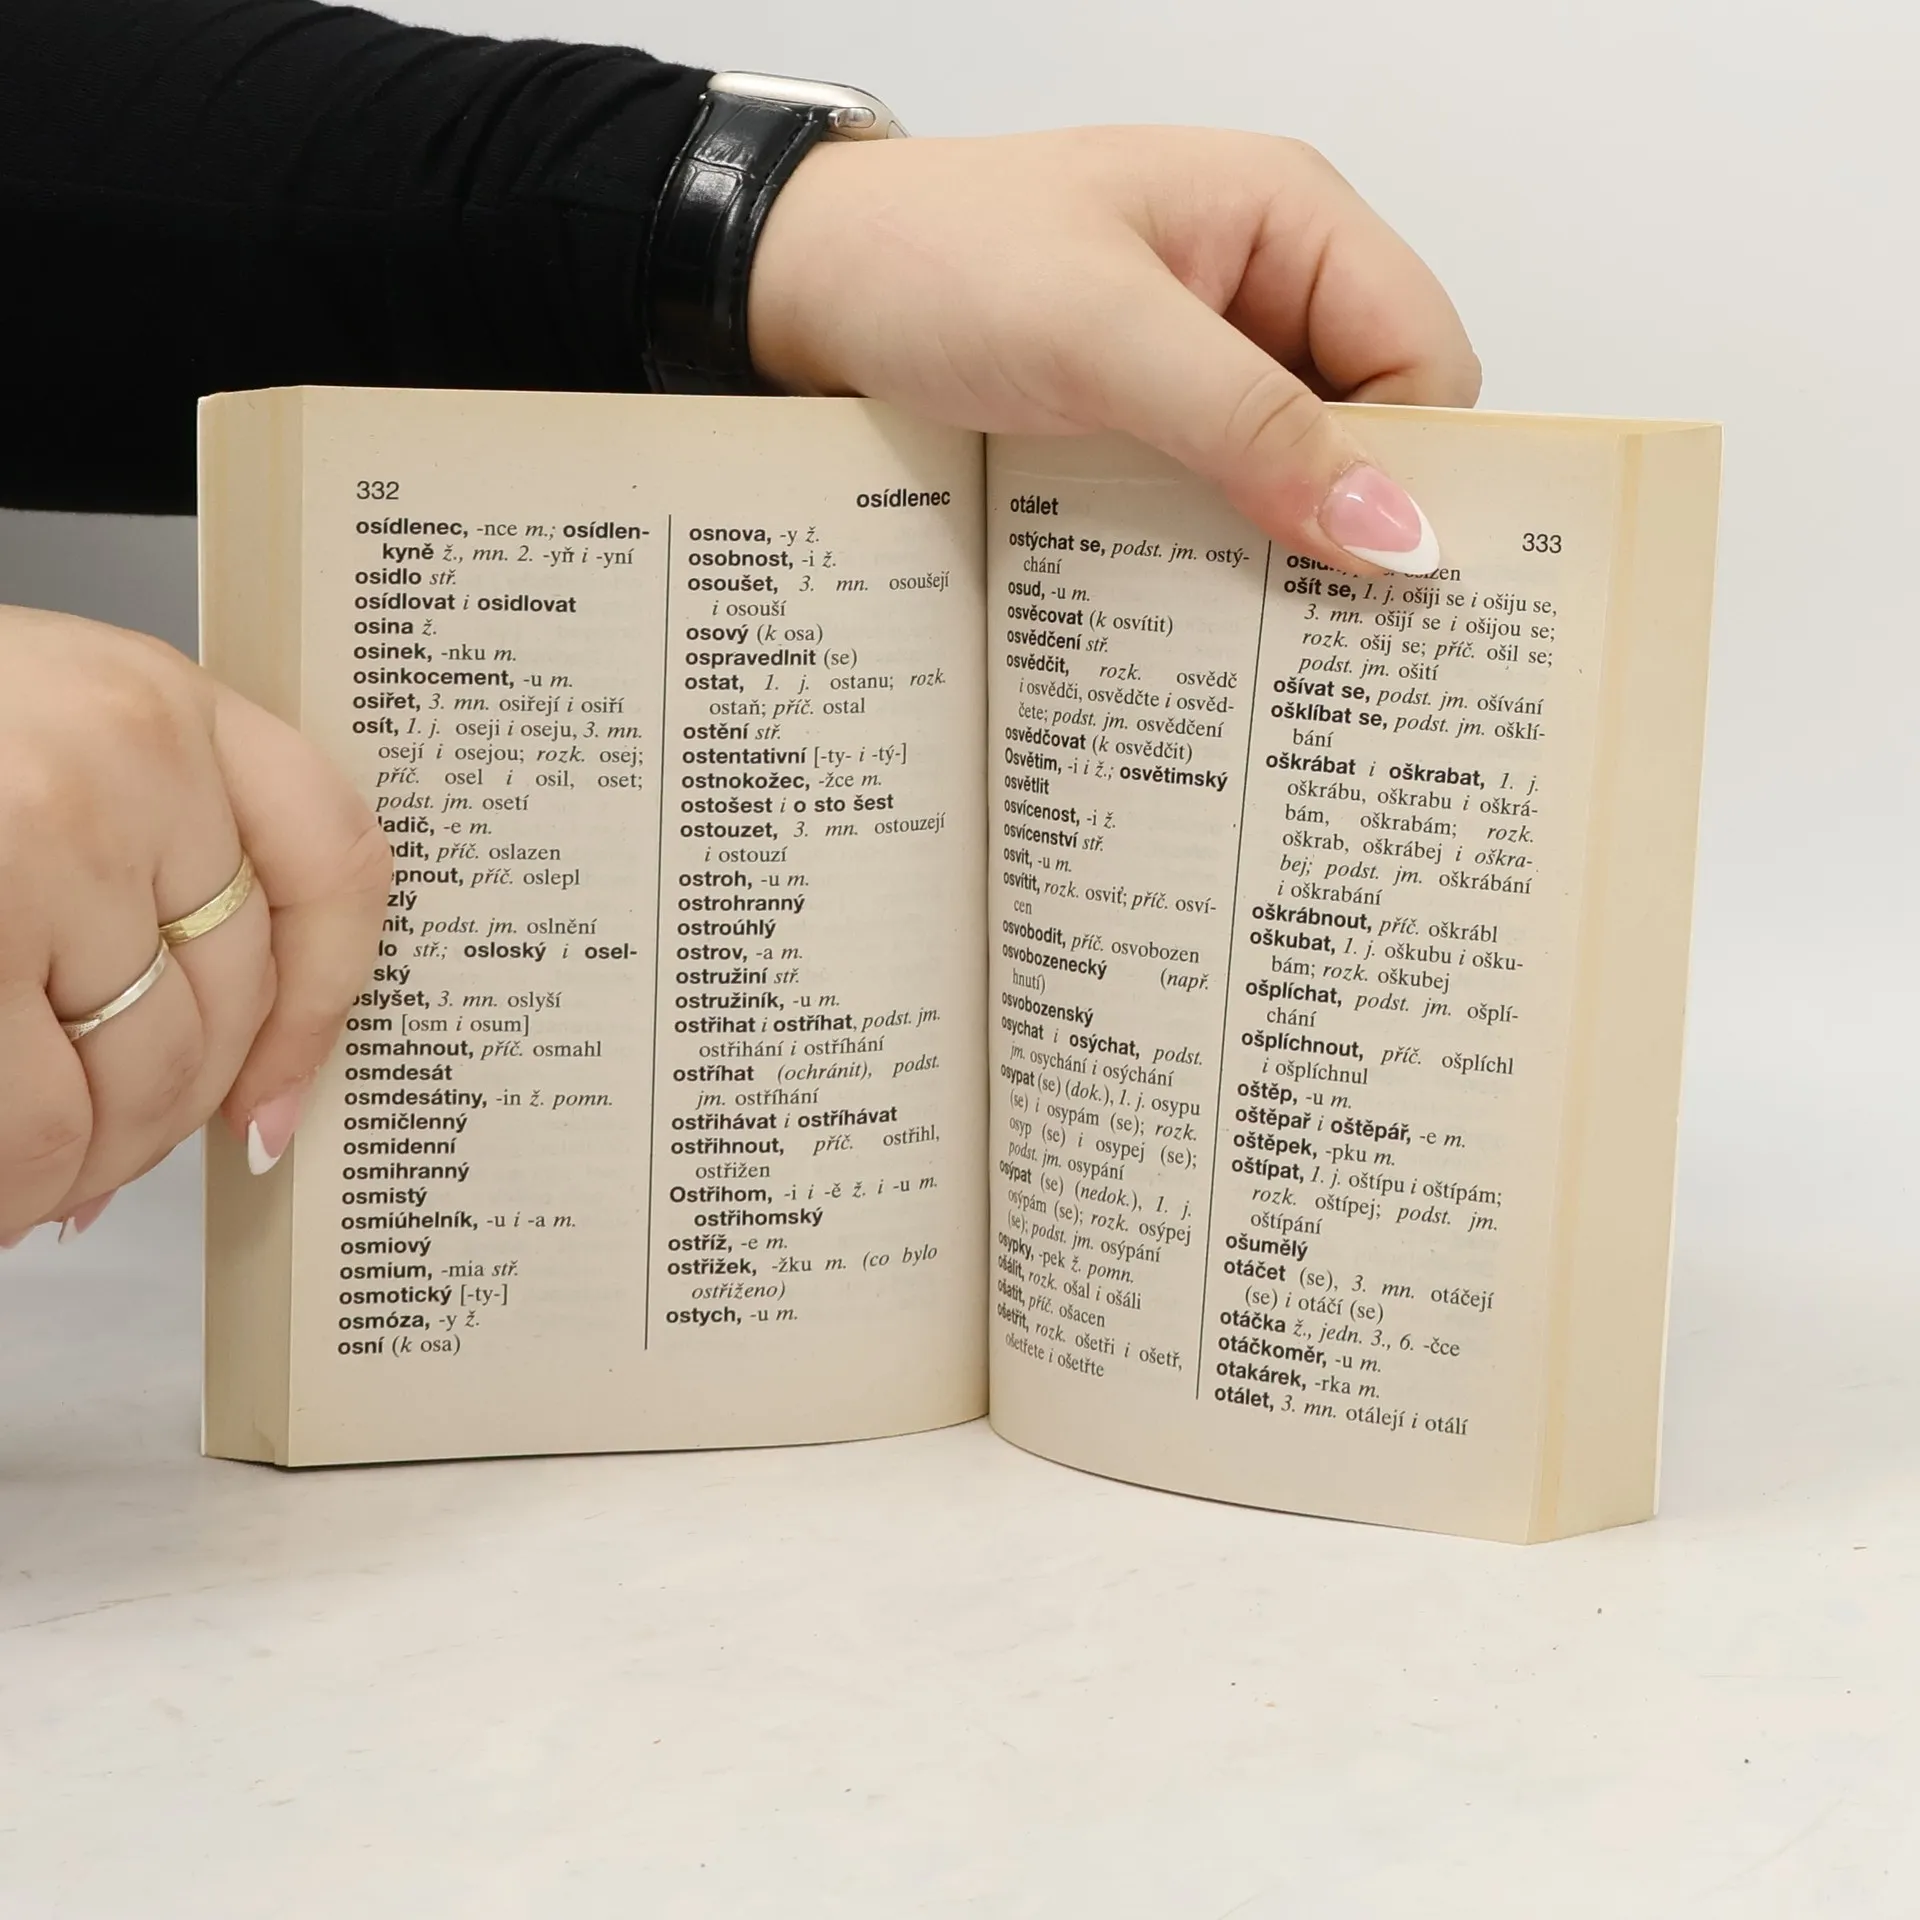 332
osídlenec
osídlenec, -nce m.; osídlen-
kyně ž., mn. 2. -yň i -yní
osidlo stř.
osídlovat i osidlovat
osina ž.
osinek, -nku m.
osinkocement, -u m.
osiřet, 3. mn. osiřejí i osiří
osít, 1. j. oseji i oseju, 3. mn.
osejí i osejou; rozk. osej;
příč. osel i osil, oset;
podst. jm. osetí
-e m.
příč. oslazen
příč. oslepl
podst. jm. oslnění
stř.; osloský i osel-
ský
oslyšet, 3. mn. oslyší
osm [osm i osum]
osmahnout, příč. osmahl
osmdesát
osmdesátiny, -in ž. pomn.
osmičlenný
osmidenní
osmihranný
osmistý
osmiúhelník, -u i -a m.
osmiový
osmium, -mia stř.
osmotický [-ty-]
osmóza, -y ž.
osní (k osa)
osnova, -y ž.
osobnost, -i ž.
osoušet, 3. mn. osoušejí
i osouší
osový (k osa)
ospravedlnit (se)
ostat, 1. j. ostanu; rozk.
ostaň; příč. ostal
ostění stř.
ostentativní [-ty- i -tý-]
ostnokožec, -žce m.
ostošest i o sto šest
ostouzet, 3. mn. ostouzejí
i ostouzí
ostroh, -u m.
ostrohranný
ostroúhlý
ostrov, -a m.
ostružiní stř.
ostružiník, -u m.
ostřihat i ostříhat, podst. jm.
ostřihání i ostříhání
ostříhat (ochránit), podst.
jm. ostříhání
ostřihávat i ostříhávat
ostřihnout, příč. ostřihl,
ostřižen
Ostřihom, -i i -ě ž. i -u m.
ostřihomský
ostříž, -e m.
ostřižek, -žku m. (co bylo
ostřiženo)
ostych, -u m.
otálet
333
ostýchat se, podst. jm. ostý-
chání
osud, -u m.
osvěcovat (k osvítit)
osvědčení stř.
osvědčit, rozk. osvědč
i osvědči, osvědčte i osvěd-
čete; podst. jm. osvědčení
osvědčovat (k osvědčit)
Osvětim, -i i ž.; osvětimský
osvětlit
osvícenost, -i ž.
osvícenství stř.
osvit, -u m.
osvítit, rozk. osviť; příč. osví-
cen
osvobodit, příč. osvobozen
osvobozenecký (např.
hnutí)
osvobozenský
osychat i osýchat, podst.
jm. osychání i osýchání
osypat (se) (dok.), 1. j. osypu
(se) i osypám (se); rozk.
osyp (se) i osypej (se);
podst. jm. osypání
osýpat (se) (nedok.), 1. j.
osýpám (se); rozk. osýpej
(se); podst. jm. osýpání
osypky, -pek ž. pomn.
ošálit, rozk. ošal i ošáli
ošatit, příč. ošacen
ošetřit, rozk. ošetři i ošetř,
ošetřete i ošetřte
ošít se, 1. j. ošiji se i ošiju se,
3. mn. ošijí se i ošijou se;
rozk. ošij se; příč. ošil se;
podst. jm. ošití
ošívat se, podst. jm. ošívání
ošklíbat se, podst. jm. ošklí-
bání
oškrábat i oškrabat, 1. j.
oškrábu, oškrabu i oškrá-
bám, oškrabám; rozk.
oškrab, oškrábej i oškra-
bej; podst. jm. oškrábání
i oškrabání
oškrábnout, příč. oškrábl
oškubat, 1. j. oškubu i ošku-
bám; rozk. oškubej
ošplíchat, podst. jm. ošplí-
chání
ošplíchnout, příč. ošplíchl
i ošplíchnul
oštěp, -u m.
oštěpař i oštěpář, -e m.
oštěpek, -pku m.
oštípat, 1. j. oštípu i oštípám;
rozk. oštípej; podst. jm.
oštípání
ošumělý
otáčet (se), 3. mn. otáčejí
(se) i otáčí (se)
otáčka ž., jedn. 3., 6. -čce
otáčkoměr, -u m.
otakárek, -rka m.
otálet, 3. mn. otálejí i otálí